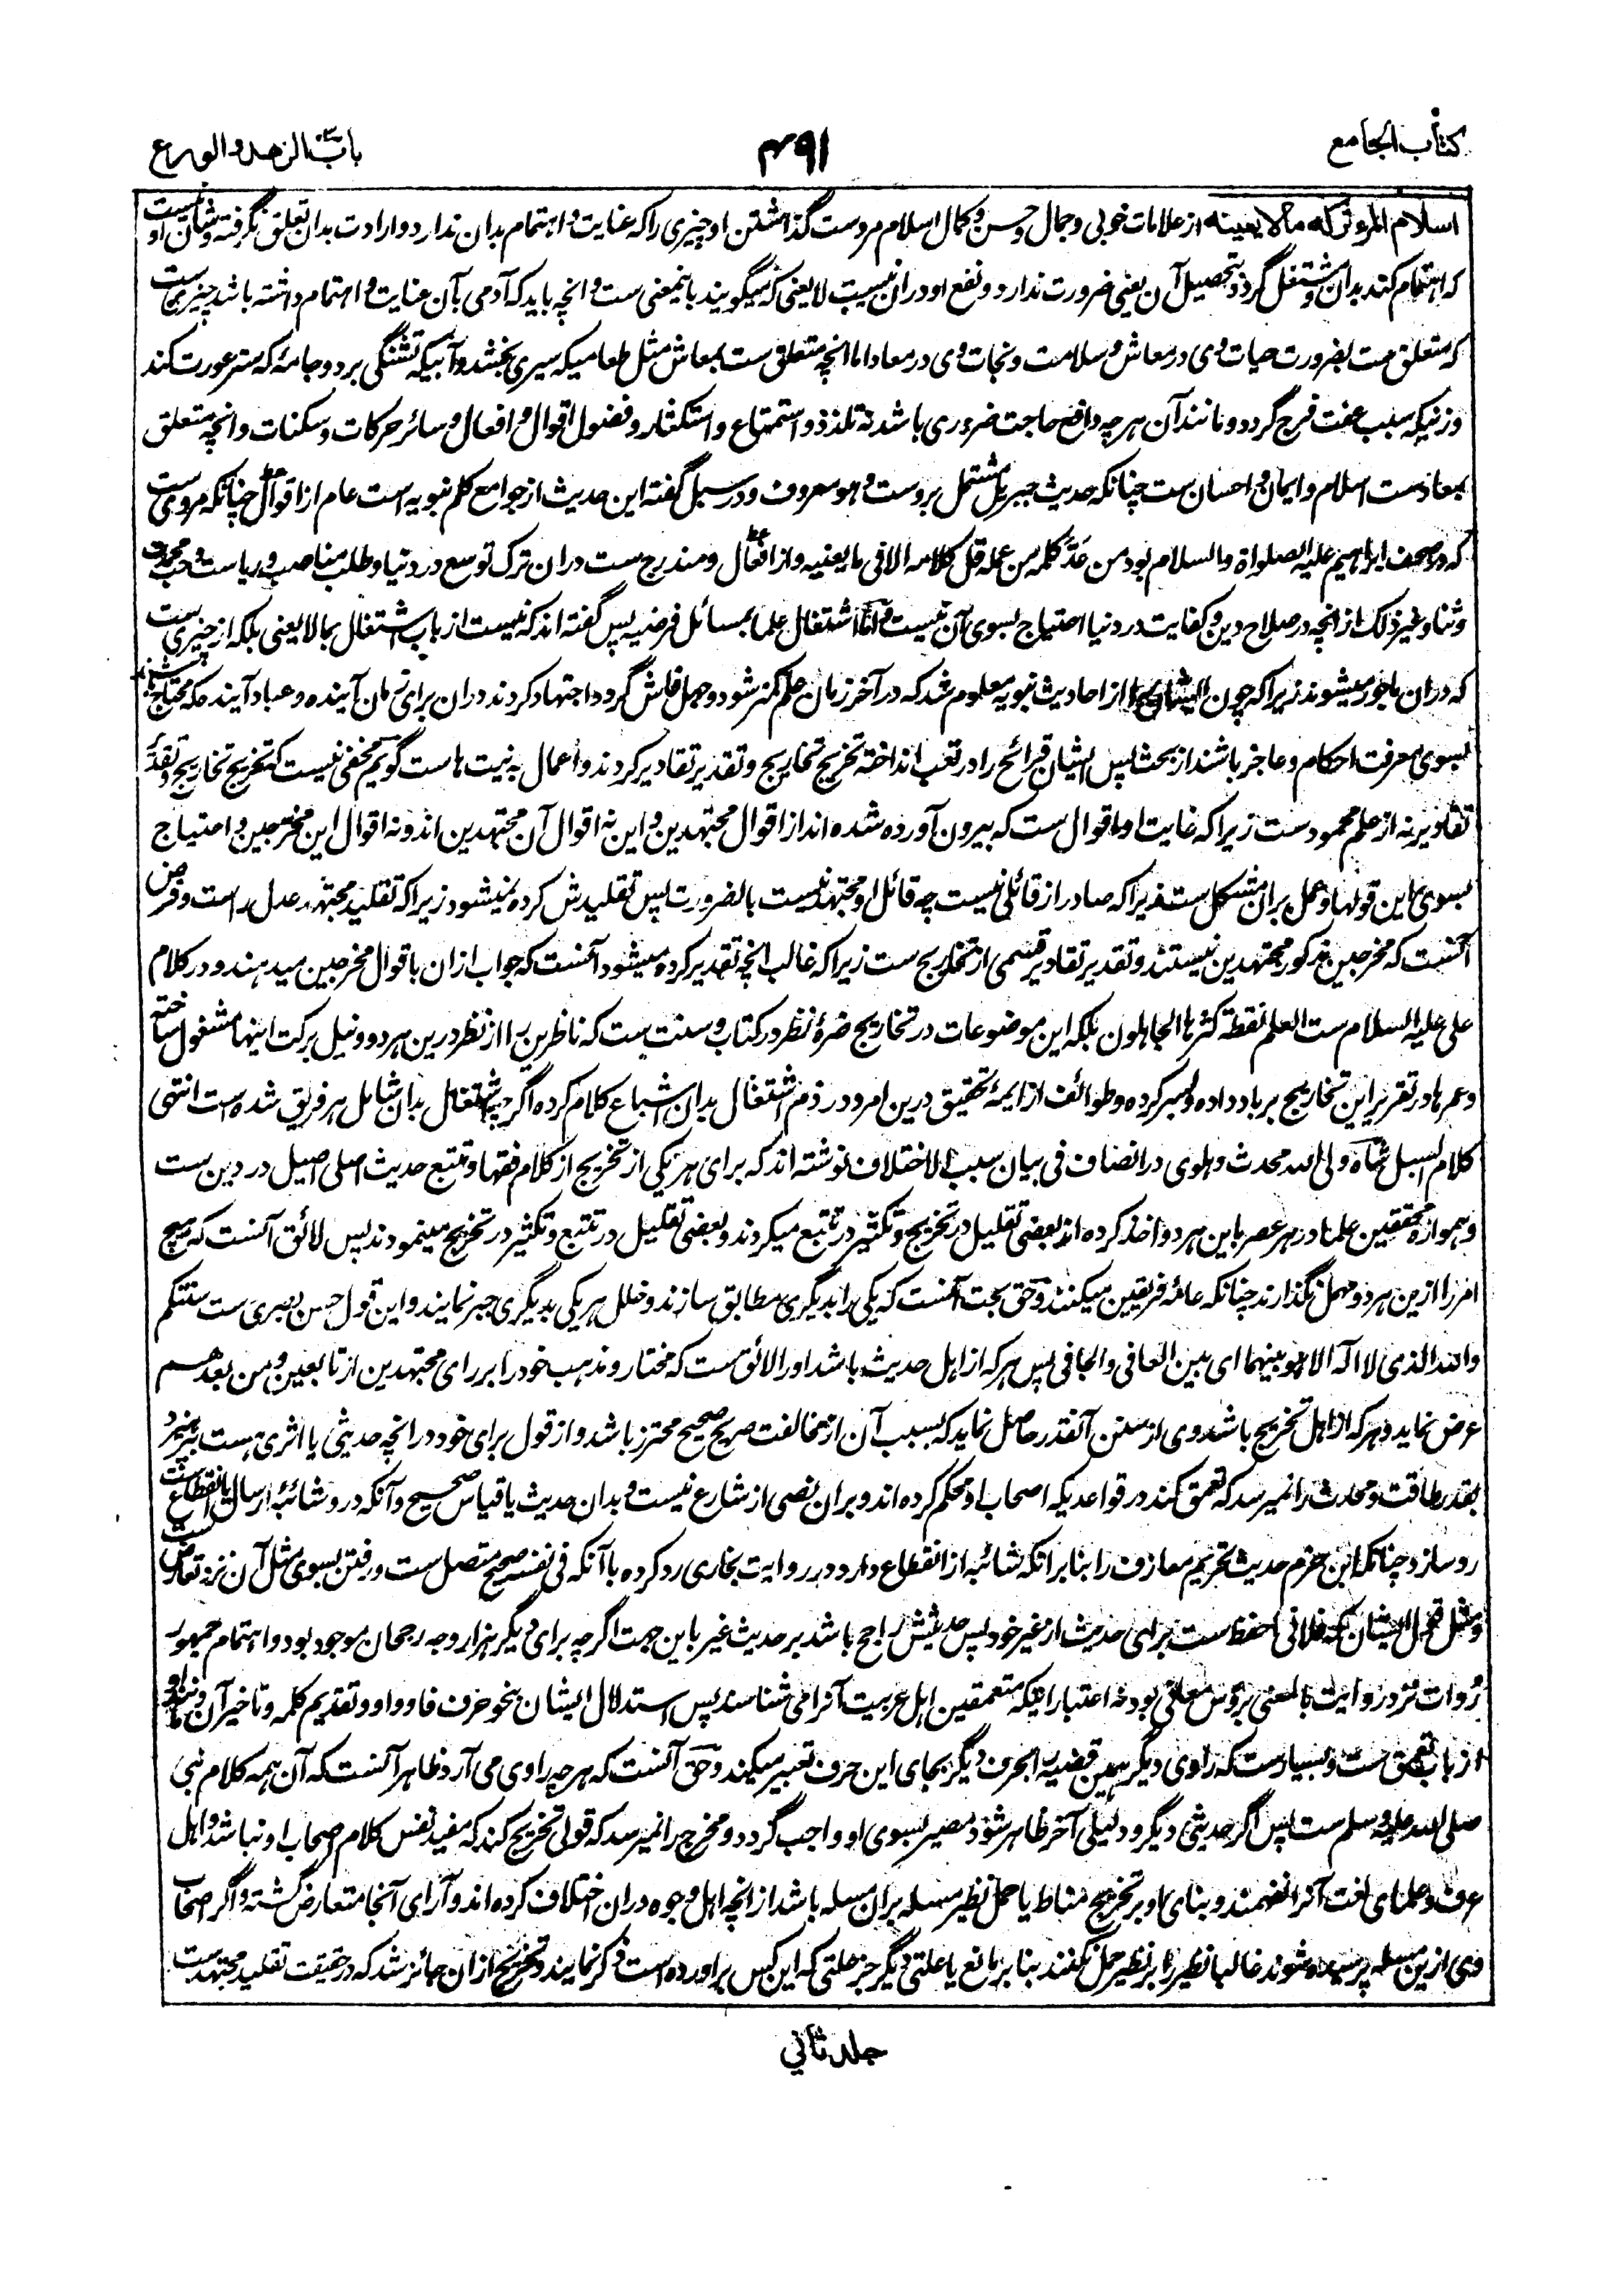 کتاب الجامع
۴۹۱
باب الزهد والورع
اسلام المرء ترکه ما لا یعنیه از علامات خوبی و جمال و حسن و کمال اسلام مردست گذاشتن او چیزی را که عنایت و اهتمام بدان ندارد و ارادت بدان تعلق نگرفته و شان او نیست
که اهتمام کند بدان و مشتغل گردد بتحصیل آن یعنی ضرورت ندارد و نفع او دران نیست لا یعنی که میگویند باینمعنی ست و انچه باید که آدمی بآن عنایت و اهتمام داشته باشد چیزیست
که متعلق ست بضرورت حیات وی در معاش و سلامت و نجات وی در معاد اما انچه متعلق ست بمعاش مثل طعامیکه سیری بخشد و آبیکه تشنگی برد و جامهٔ که ستر عورت کند
و زنیکه سبب عفت فرج گردد و مانند آن هرچه دافع حاجت ضروری باشد نه تلذذ و استمتاع و استکثار و فضول اقوال و افعال و سائر حرکات و سکنات و انچه متعلق
بمعادست اسلام و ایمان و احسان ست چنانکه حدیث جبریل مشتمل بروست و هو معروف و در سبل گفته این حدیث از جوامع کلم نبویه است عام از اقوال چنانکه مروی ست
که در صحف ابراهیم علیه الصلواة والسلام بود من عدّ کلامه من عمله قل کلامه الا فی ما یعنیه و از افعال و مندرج ست دران ترک توسع در دنیا و طلب مناصب و ریاست و حب محمدت
و ثنا و غیر ذلک از انچه در صلاح دین و کفایت در دنیا احتیاج بسوی آن نیست و اما اشتغال علما بمسائل فرضیه پس گفته اند که نیست از باب اشتغال بما لا یعنی بلکه از چیزی ست
که دران ماجور میشوند زیرا که چون ایشان را از احادیث نبویه معلوم شد که در آخر زمان علم کم شود و جهل فاش گردد اجتهاد کردند دران برای زمان آینده و عباد آینده که محتاج شوند
بسوی معرفت احکام و عاجز باشند از بحث پس ایشان قرائح را در تعب انداخته تخریج تخاریج و تقدیر تقادیر کردند و اعمال به نیت هاست گویم مخفی نیست که تخریج تخاریج و تقدیر
تقادیر نه از علم محمودست زیرا که غایت او اقوال ست که بیرون آورده شده اند از اقوال مجتهدین و این نه اقوال آن مجتهدین اند و نه اقوال این مخرجین و احتیاج
بسوی این قولها و عمل بران مشکل ست زیرا که صادر از قائلی نیست چه قائل او مجتهد نیست بالضرورت پس تقلیدش کرده نمیشود زیرا که تقلید مجتهد عدل راست و فرض
آنست که مخرجین مذکور مجتهدین نیستند و تقدیر تقادیر قسمی از تخاریج ست زیرا که غالب انچه تقدیر کرده میشود آنست که جواب ازان باقوال مخرجین میدهند و در کلام
علی علیه السلام ست العلم نقطة کثرها الجاهلون بلکه این موضوعات در تخاریج ضرهٔ نظر در کتاب و سنت ست که ناظرین را از نظر درین هر دو و نیل برکت اینها مشغول ساخته
و عمرها در تقریر این تخاریج برباد داده و بسر کرده و طوائف از ایمهٔ تحقیق درین امر و در ذم اشتغال بدان اشباع کلام کرده اگرچه اشتغال بدان شامل هر فریق شده است انتهی
کلام السبل شاه ولی الله محدث دهلوی در انصاف فی بیان سبب الاختلاف نوشته اند که برای هر یکی از تخریج از کلام فقها و تتبع حدیث اصلی اصیل در دین ست
و همواره محققین علما در هر عصر باین هر دو اخذ کرده اند بعضی تقلیل در تخریج و تکثیر در تتبع میکردند و بعضی تقلیل در تتبع و تکثیر در تخریج مینمودند پس لائق آنست که هیچ
امر را ازین هر دو مهمل نگذارند چنانکه عامهٔ فریقین میکنند و حق بحت آنست که یکی را بدیگری مطابق سازند و خلل هر یکی بدیگری جبر نمایند و این قول حسن بصری ست سنتکم
والله الذی لا اله الا هو بینهما ای بین الغافی والجافی پس هر که از اهل حدیث باشد او را لائق ست که مختار و مذهب خود را بر رای مجتهدین از تابعین و من بعدهم
عرض نماید و هر که از اهل تخریج باشد وی از سنن آنقدر حاصل نماید که بسبب آن از مخالفت صریح صحیح محترز باشد و از قول برای خود در انچه حدیثی یا اثری هست بپرهیزد
بقدر طاقت و محدث را نمیرسد که تعمق کند در قواعدیکه اصحاب او محکم کرده اند و بران نصی از شارع نیست و بدان حدیث یا قیاس صحیح و آنکه درو شائبهٔ ارسال یا انقطاع ست
رد سازد چنانکه ابن حزم حدیث تحریم معازف را بنابر آنکه شائبه از انقطاع دارد در روایت بخاری رد کرده با آنکه فی نفسه صحیح متصل ست و رفتن بسوی مثل آن نزد تعارض ست
و مثل قول ایشان که فلانی احفظ ست برای حدیث از غیر خود پس حدیثش راجح باشد بر حدیث غیر باین جهت اگرچه برای دیگر هزار وجه رجحان موجود بود و اهتمام جمهور
رُوات نزد روایت بالمعنی برؤس معانی بود نه اعتباراتیکه متعمقین اهل عربیت آنرا می شناسند پس استدلال ایشان بنحو حرف فا و واو و تقدیم کلمه و تاخیر آن و مانند او
از باب تعمق ست و بسیارست که راوی دیگر همین قضیه را بحرف دیگر بجای این حرف تعبیر میکند و حق آنست که هرچه راوی می آرد ظاهر آنست که آن همه کلام نبی
صلی الله علیه و سلم ست پس اگر حدیثی دیگر و دلیلی آخر ظاهر شود مصیر بسوی او واجب گردد و مخرج را نمیرسد که قولی تخریج کند که مفید نفس کلام اصحاب او نباشد و اهل
عرف و علمای لغت آنرا نفهمند و بنای او بر تخریج مناط یا حمل نظیر مسله بران مسله باشد از انچه اهل وجوه دران اختلاف کرده اند و آرای آنجا متعارض گشته و اگر اصحاب
وی ازین مسله پرسیده شوند غالبا نظیر را بر نظیر حمل نکنند بنا بر مانع یا علتی دیگر جز علتی که این کس برآورده است ذکر نمایند و تخریج ازان جائز شد که در حقیقت تقلید مجتهدست
جلد ثانی